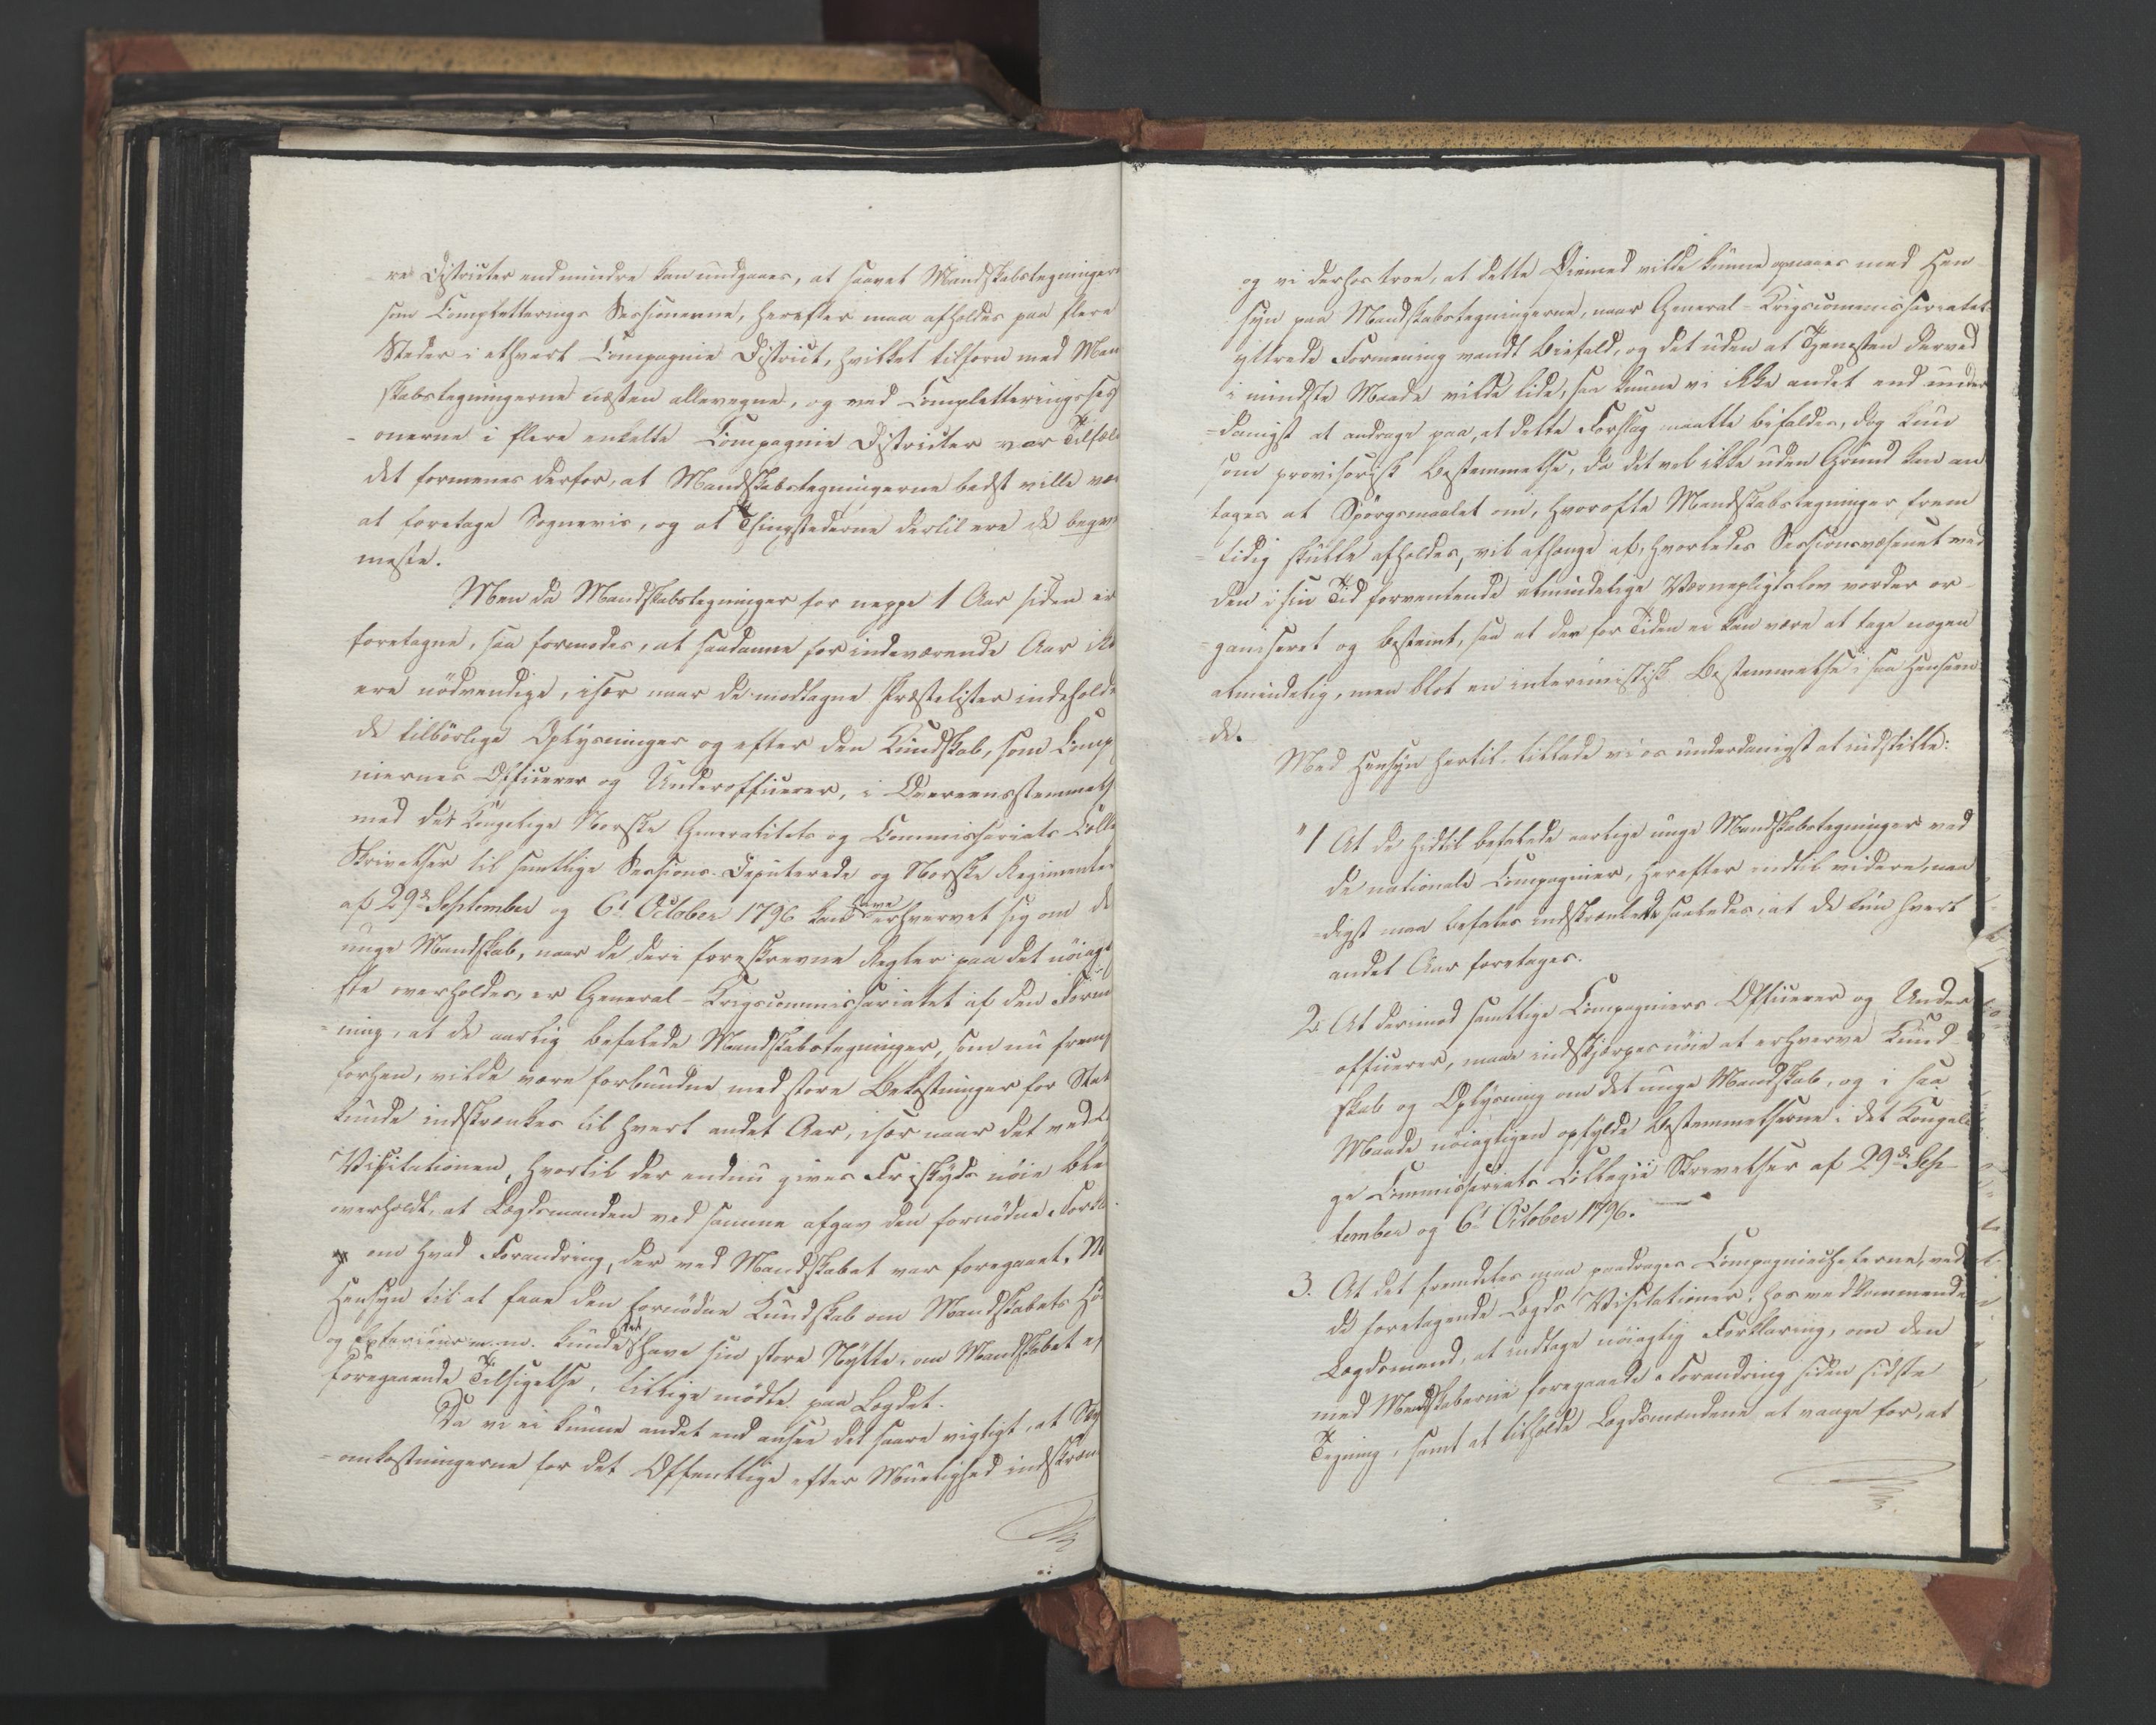 re Districter endmindre kan undgaaes, at saavel Mandskabstegninger
som Completterings Sessionerne, herefter maa afholdes paa flere
Steder i ethvert Compagnie District, hvilket tilforn med Man
skabstegningerne næsten allevegne, og ved Completteringsses
-onerne i flere enkelte Compagnie Districter var Tilfæl
det formenes derfor, at Mandskabstegningerne bedst ville væ
at foretage Sogneviis, og at Thingstederne dertil ere de beqve
meste.
Men da Mandskabstegninger for neppe 1 Aar siden er
foretagne, saa formodes, at saadanne for indeværende Aar ik
ere nödvendige, især naar de modtagne Præstelister indehold
de tilbörlige Oplysninger og efter den Kundskab, som Comp
niernes Officerer og Underofficerer, i Overeensstemmels
med det Kongelige Norske Generalitets og Commissariats Colle
Skrivelser til samtlige Sessions-Deputerede og Norske Regimenter
af 29de September og 6te October 1796 kan have erhvervet sig om de
unge Mandskab, naar de deri foreskrevne Regler paa det nöiag
ste overholdes, er General-Krigscommissariatet af den Form
-ning, at de aarlig befalede Mandskabstegninger, som nu frem
forhen, vilde være forbundne med store Bekostninger for Stat
kunde indskrænkes til hvert andet Aar, især naar det ved L
Visitationen, hvortil der endnu gives Friskyds nöie ble
overholdt, at Lægdsmanden ved samme afgav den fornödne Forkl
om hvad Forandring, der ved Mandskabet var foregaaet. M
Hensyn til at faae den fornödne Kundskab om Mandskabets Hö
og Exterieur m.m. kunde det have sin store Nytte, om Mandskabet e
foregaaende Tilsigelse, tillige mödte paa Lægdet.
Da vi ei kunne andet end ansee det saare vigtigt, at
-omkostningerne for det Offentlige efter Muelighed indskræn
og vi derhos troe, at dette Öiemed vilde kunne opnaaes med Hen
syn paa Mandskabstegningerne, naar General-Krigscommissariatets
yttrede Formening vandt Biefald, og det uden at Tjenesten derved
i mindste Maade vilde lide, saa kunne vi ikke andet end under
-danigst at andrage paa, at dette Forslag maatte bifaldes, dog kun
som provisorisk Bestemmelse, da det vel ikke uden Grund kan an
tages at Spörgsmaalet om, hvorofte Mandskabstegninger frem
-tidig skulle afholdes, vil afhænge af, hvorledes Sessionsvæsenet ved
den i sin Tid forventende almindelige Værnepligtslov vorder or
-ganiseret og bestemt, saa at der for Tiden ei kan være at tage nogen
almindelig, men blot en interimistisk Bestemmelse i saa Henseen
de.
Med Hensyn hertil tillade vi os underdanigst at indstille:
"1 At de hidtil befalede aarlige unge Mandskabstegninger ved
de nationale Compagnier, herefter indtil videre, naa
-digst maa befales indskrænkede saaledes, at de kun hvert
andet Aar foretages.
2. At derimod samtlige Compagniers Officerer og Under
officerer, maae indskjærpes nöie at erhverve Kund
skab og Oplysning om det unge Mandskab, og i saa
Maade nöiagtigen opfylde Bestemmelserne i det Kongeli
ge Commissariats Collegii Skrivelser af 29de Sep
tember og 6te October 1796.
3. At det fremdeles maa paadrages Compagniecheferne, ved
de foretagende Lægds Visitationer, hos vedkommende
Lægdsmand, at indtage nöiagtig Forklaring, om den
med Mandskaberne foregaaede Forandring siden sidste
Tegning, samt at tilholde Lægdsmændene at vaage for, at